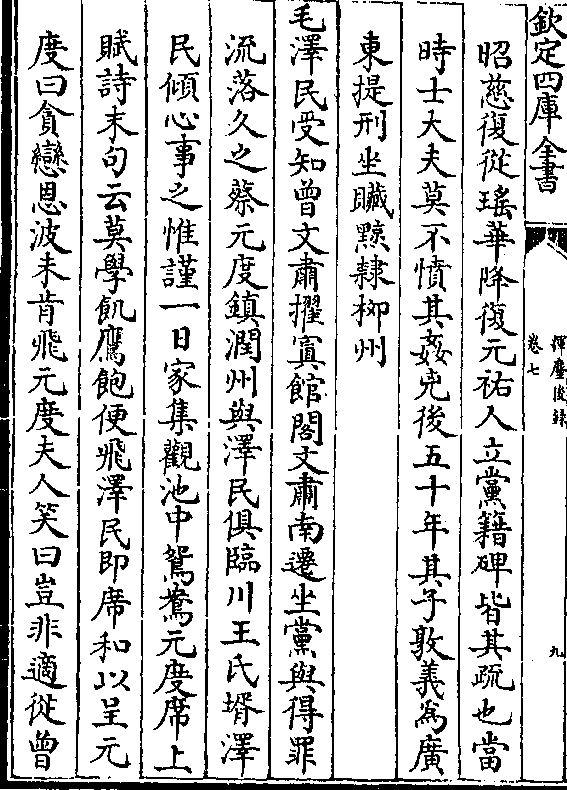 欽定四庫全書
揮麈後錄
卷七
九
昭慈復從瑤華降復元祐人立黨籍碑皆其疏也當
時士大夫莫不憤其姦兇後五十年其子敦義為廣
東提刑坐贓黥隸柳州
毛澤民受知曾文肅擢寘館閣文肅南遷坐黨與得罪
流落久之蔡元度鎮潤州與澤民俱臨川王氏壻澤
民傾心事之惟謹一日家集觀池中鴛鴦元度席上
賦詩末句云莫學飢鷹飽便飛澤民即席和以呈元
度曰貪戀恩波未肯飛元度夫人笑曰豈非適從曾